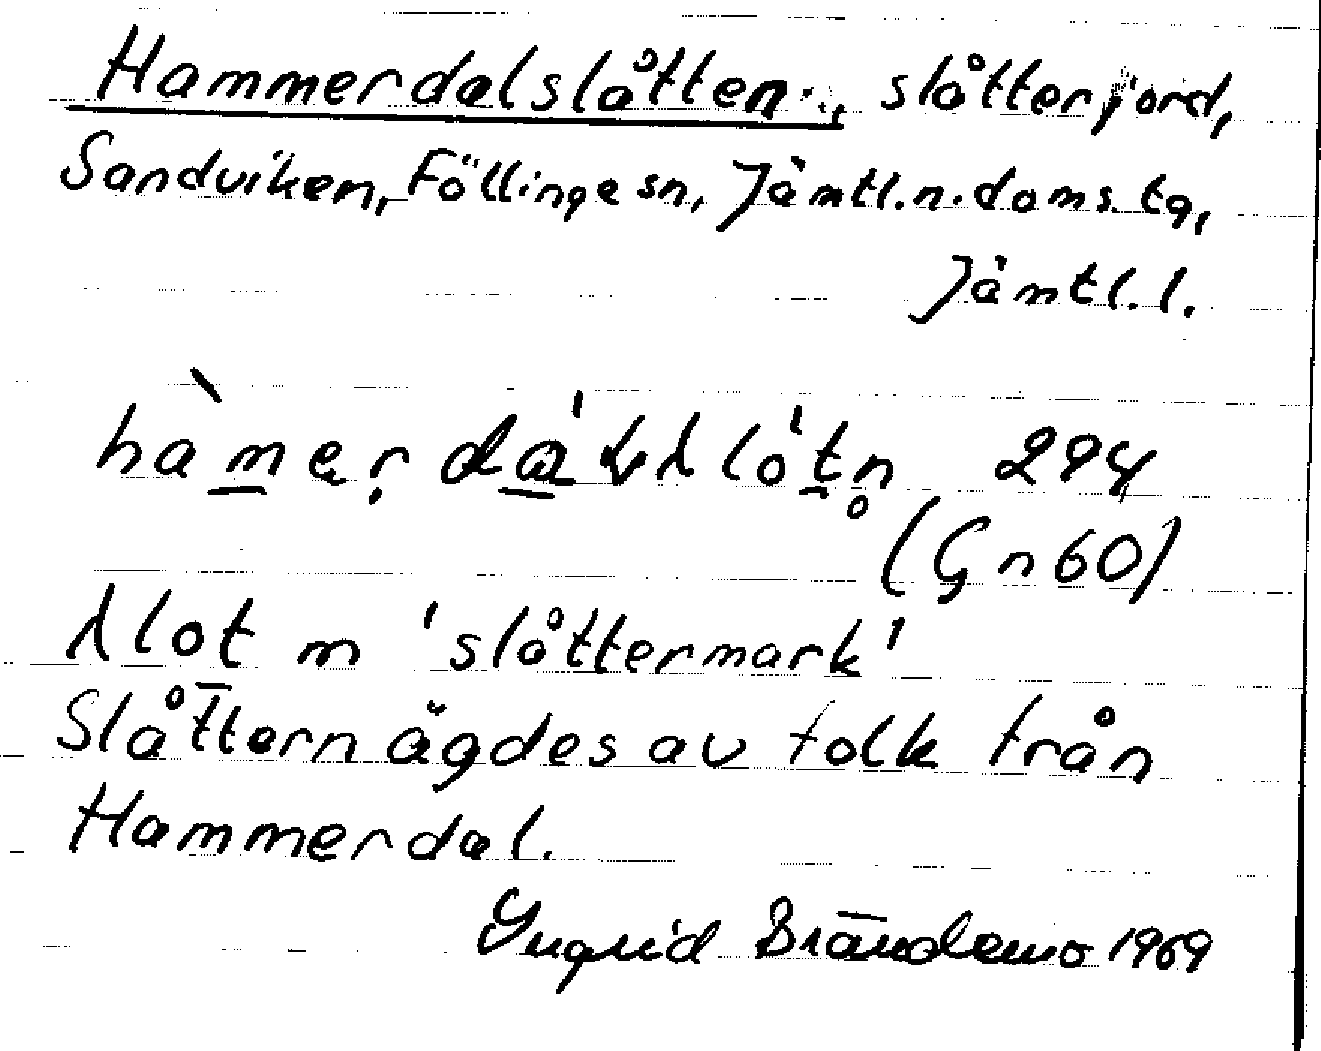 Hammerdalslåtten, slåtterjord,
Sandviken, Föllinge sn, Jämtl. n. doms. tg,
Jämtl. l.
294
(Gn 60)
λlot m 'slåttermark'
Slåttern ägdes av folk från
Hammerdal.
Ingrid Brändemo 1969